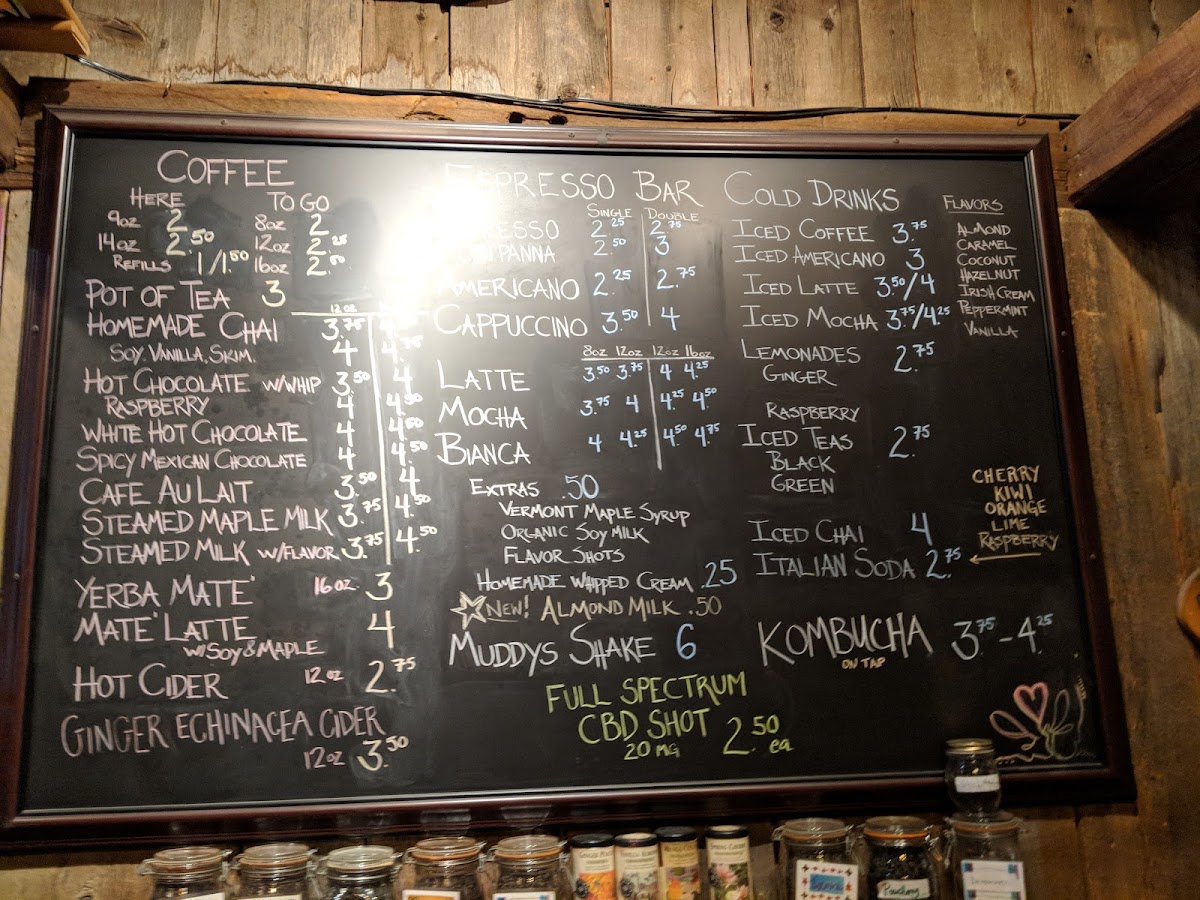 COFFEE
HERE TO GO
9oz 2 8oz 2
14oz 2.50 12oz 2.25
REFILLS 1/1.50 16oz 2.50
POT OF TEA 3
12 oz
HOMEMADE CHAI 3.75
SOY, VANILLA, SKIM. 4 4.75
HOT CHOCOLATE W/WHIP 3.50 4
RASPBERRY 4 4.50
WHITE HOT CHOCOLATE 4 4.50
SPICY MEXICAN CHOCOLATE 4 4.50
CAFE AU LAIT 3.50 4
STEAMED MAPLE MILK 3.75 4.50
STEAMED MILK W/FLAVOR 3.75 4.50
YERBA MATE' 16oz 3
MATE' LATTE 4
W/SOY & MAPLE
HOT CIDER 12oz 2.75
GINGER ECHINACEA CIDER
12oz 3.50
ESPRESSO BAR
SINGLE DOUBLE
ESPRESSO 2.25 2.75
PANNA 2.50 3
AMERICANO 2.25 2.75
CAPPUCCINO 3.50 4
8oz 12oz 12oz 16oz
LATTE 3.50 3.75 4 4.25
MOCHA 3.75 4 4.25 4.50
BIANCA 4 4.25 4.50 4.75
EXTRAS .50
VERMONT MAPLE SYRUP
ORGANIC SOY MILK
FLAVOR SHOTS
HOMEMADE WHIPPED CREAM .25
NEW! ALMOND MILK .50
MUDDYS SHAKE 6
FULL SPECTRUM
CBD SHOT 2.50 ea
20 MG
COLD DRINKS
ICED COFFEE 3.75
ICED AMERICANO 3
ICED LATTE 3.50/4
ICED MOCHA 3.75/4.25
LEMONADES 2.75
GINGER
RASPBERRY
ICED TEAS 2.75
BLACK
GREEN
ICED CHAI 4
ITALIAN SODA 2.75
KOMBUCHA 3.75-4.25
ON TAP
FLAVORS
ALMOND
CARAMEL
COCONUT
HAZELNUT
IRISH CREAM
PEPPERMINT
VANILLA
CHERRY
KIWI
ORANGE
LIME
RASPBERRY